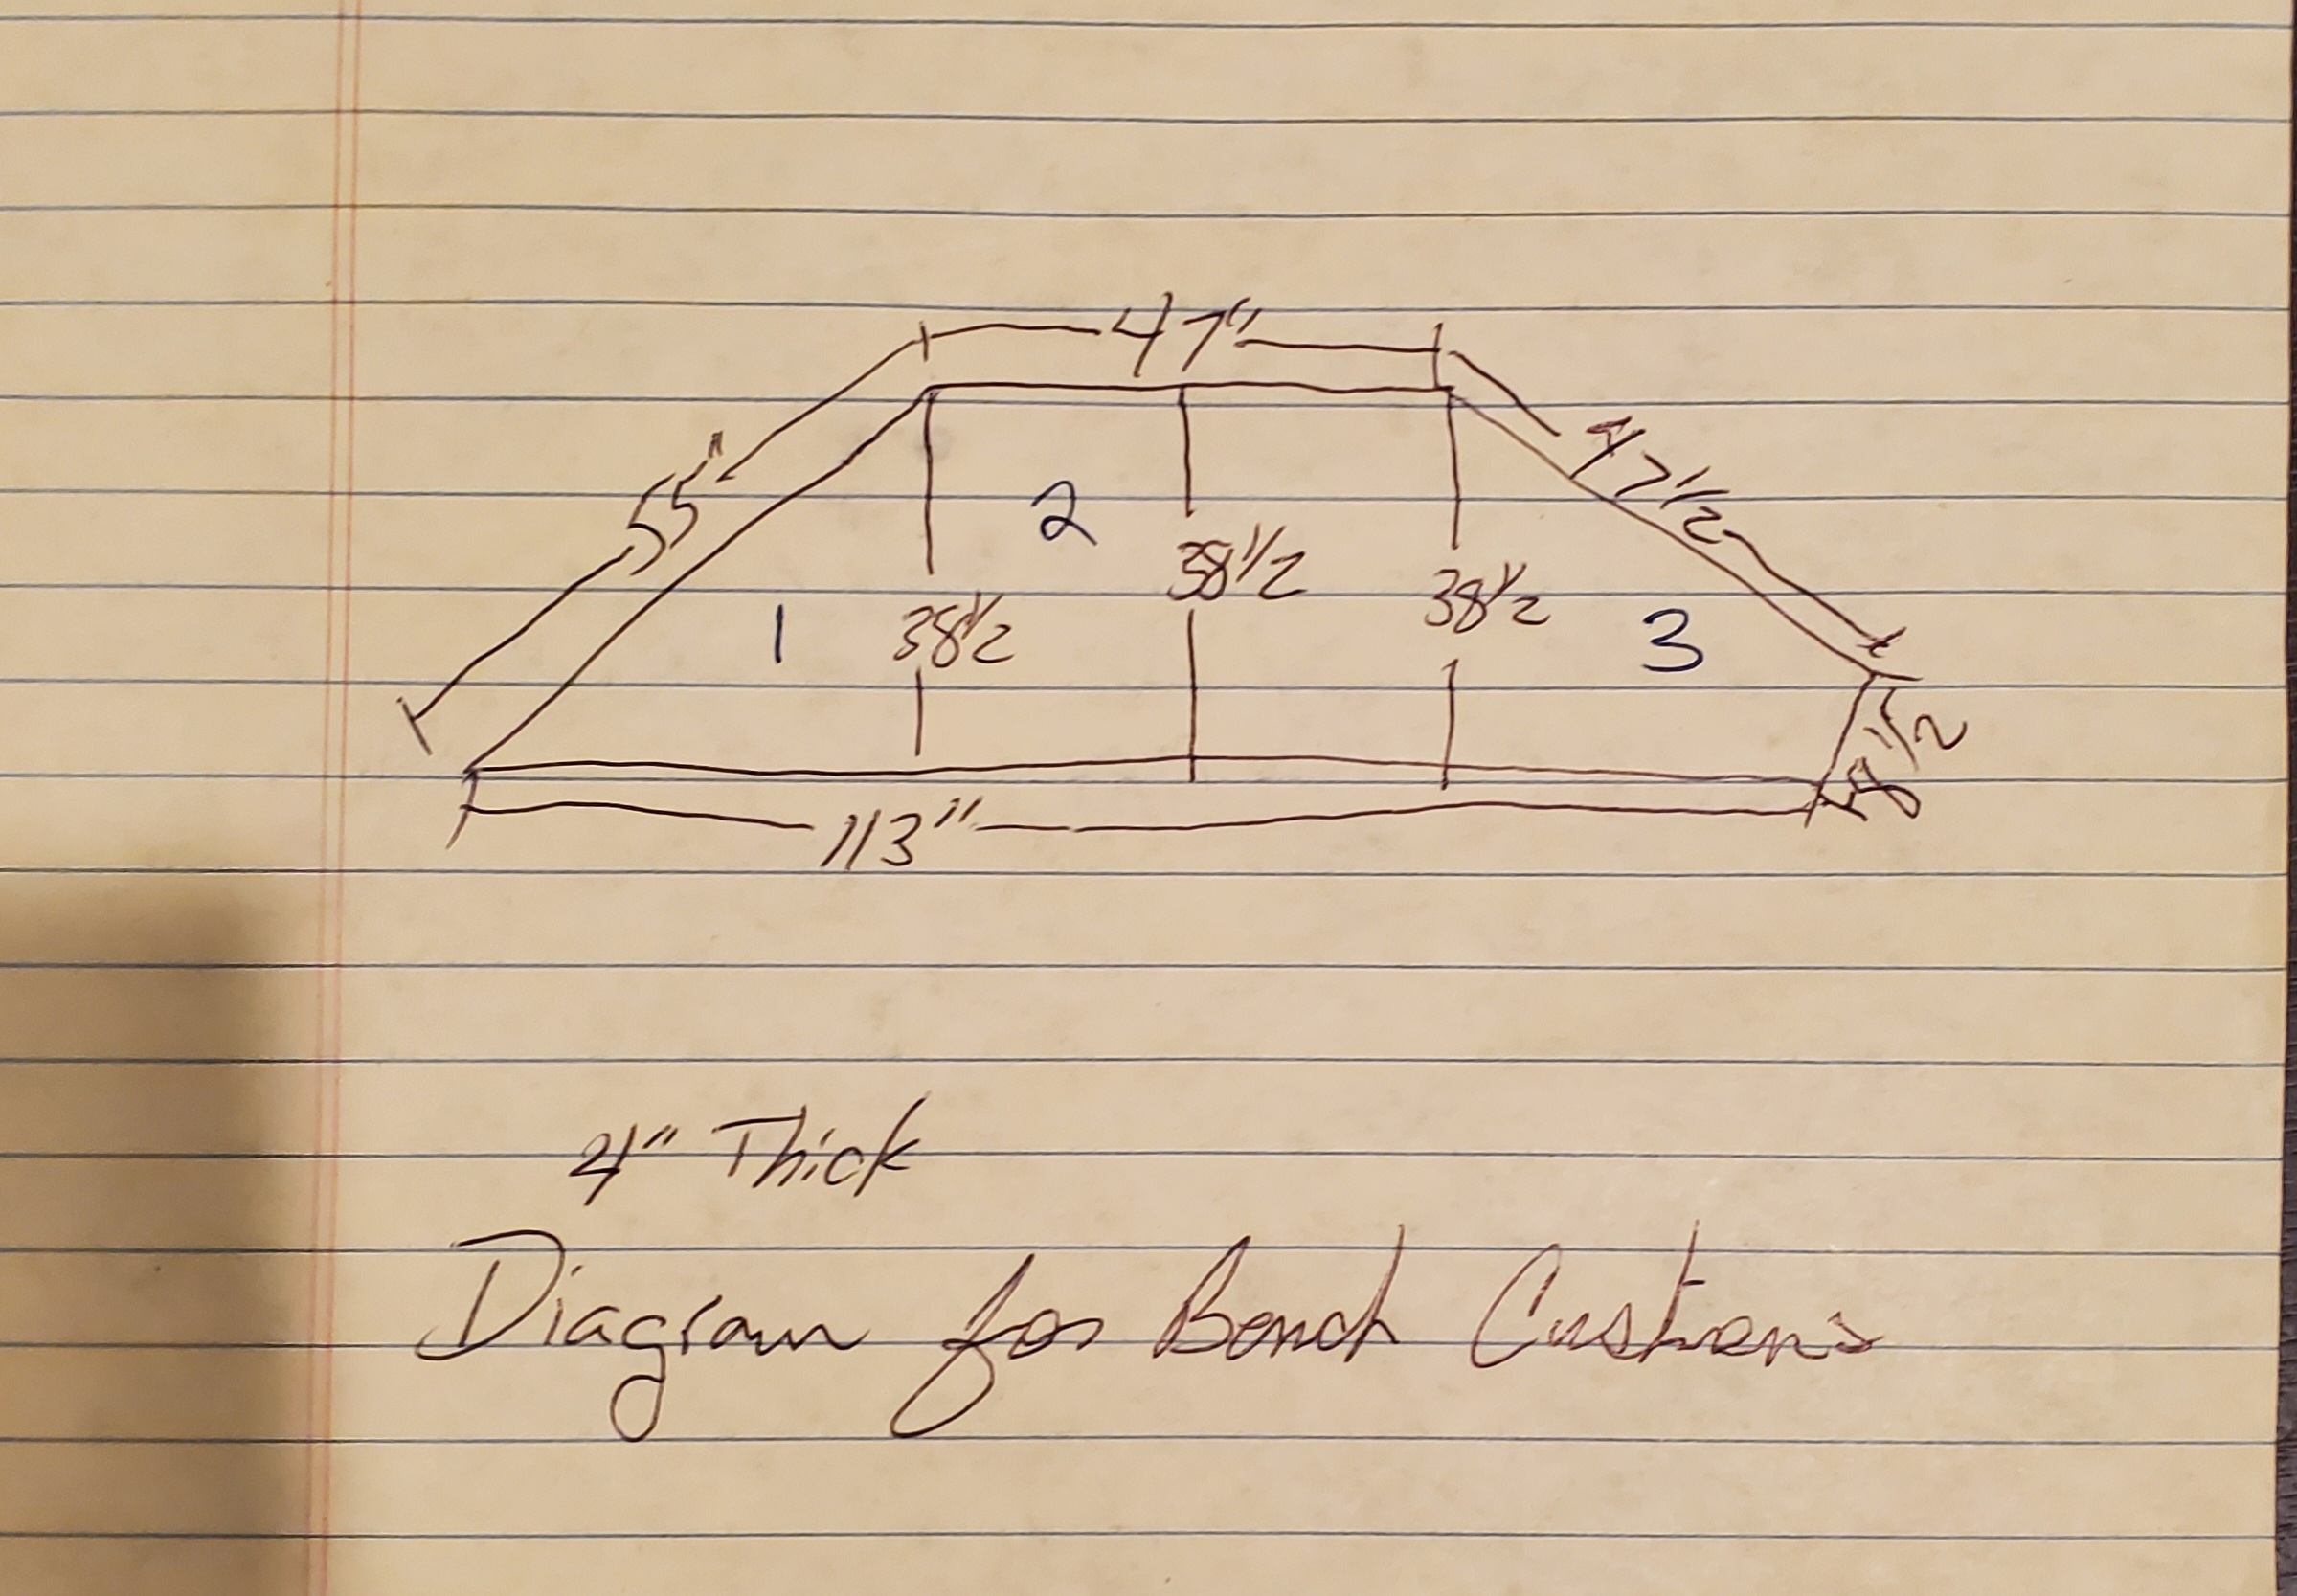 47"
55"
47 1/2
2
38 1/2
38 1/2
38 1/2
1
3
8 1/2
113"
4" Thick
Diagram for Bench Cushions